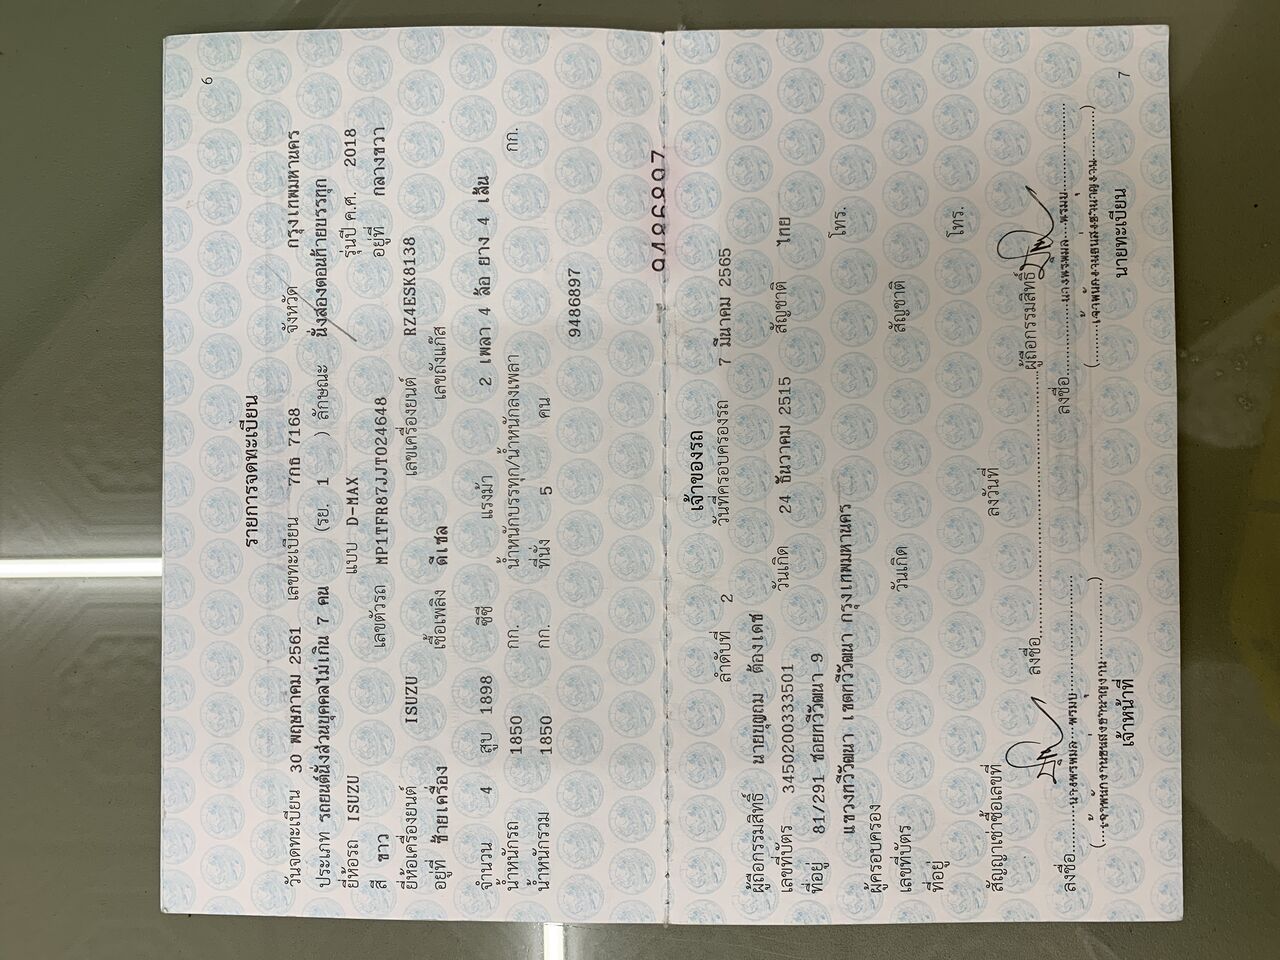 6
รายการจดทะเบียน
วันจดทะเบียน 30 พฤษภาคม 2561 เลขทะเบียน 7กธ 7168 จังหวัด กรุงเทพมหานคร
ประเภท รถยนต์นั่งส่วนบุคคลไม่เกิน 7 คน (รย. 1 ) ลักษณะ นั่งสองตอนท้ายบรรทุก
ยี่ห้อรถ ISUZU แบบ D-MAX รุ่นปี ค.ศ. 2018
สี ขาว เลขตัวรถ MP1TFR87JJT024648 อยู่ที่ กลางขวา
ยี่ห้อเครื่องยนต์ ISUZU เลขเครื่องยนต์ RZ4ESK8138
อยู่ที่ ซ้ายเครื่อง เชื้อเพลิง ดีเซล เลขถังแก๊ส
จำนวน 4 สูบ 1898 ซีซี แรงม้า 2 เพลา 4 ล้อ ยาง 4 เส้น
น้ำหนักรถ 1850 กก. น้ำหนักบรรทุก/น้ำหนักลงเพลา กก.
น้ำหนักรวม 1850 กก. ที่นั่ง 5 คน
9486897
9486897
เจ้าของรถ
ลำดับที่ 2 วันที่ครอบครองรถ 7 มีนาคม 2565
ผู้ถือกรรมสิทธิ์ นายบุญถม ต้องเดช
เลขที่บัตร 3450200333501 วันเกิด 24 ธันวาคม 2515 สัญชาติ ไทย
ที่อยู่ 81/291 ซอยทวีวัฒนา 9
แขวงทวีวัฒนา เขตทวีวัฒนา กรุงเทพมหานคร โทร.
ผู้ครอบครอง
เลขที่บัตร วันเกิด สัญชาติ
ที่อยู่ โทร.
สัญญาเช่าซื้อเลขที่ ลงวันที่
ลงชื่อ ผู้ถือกรรมสิทธิ์
ลงชื่อ ลงชื่อ
เจ้าหน้าที่ นายทะเบียน
7